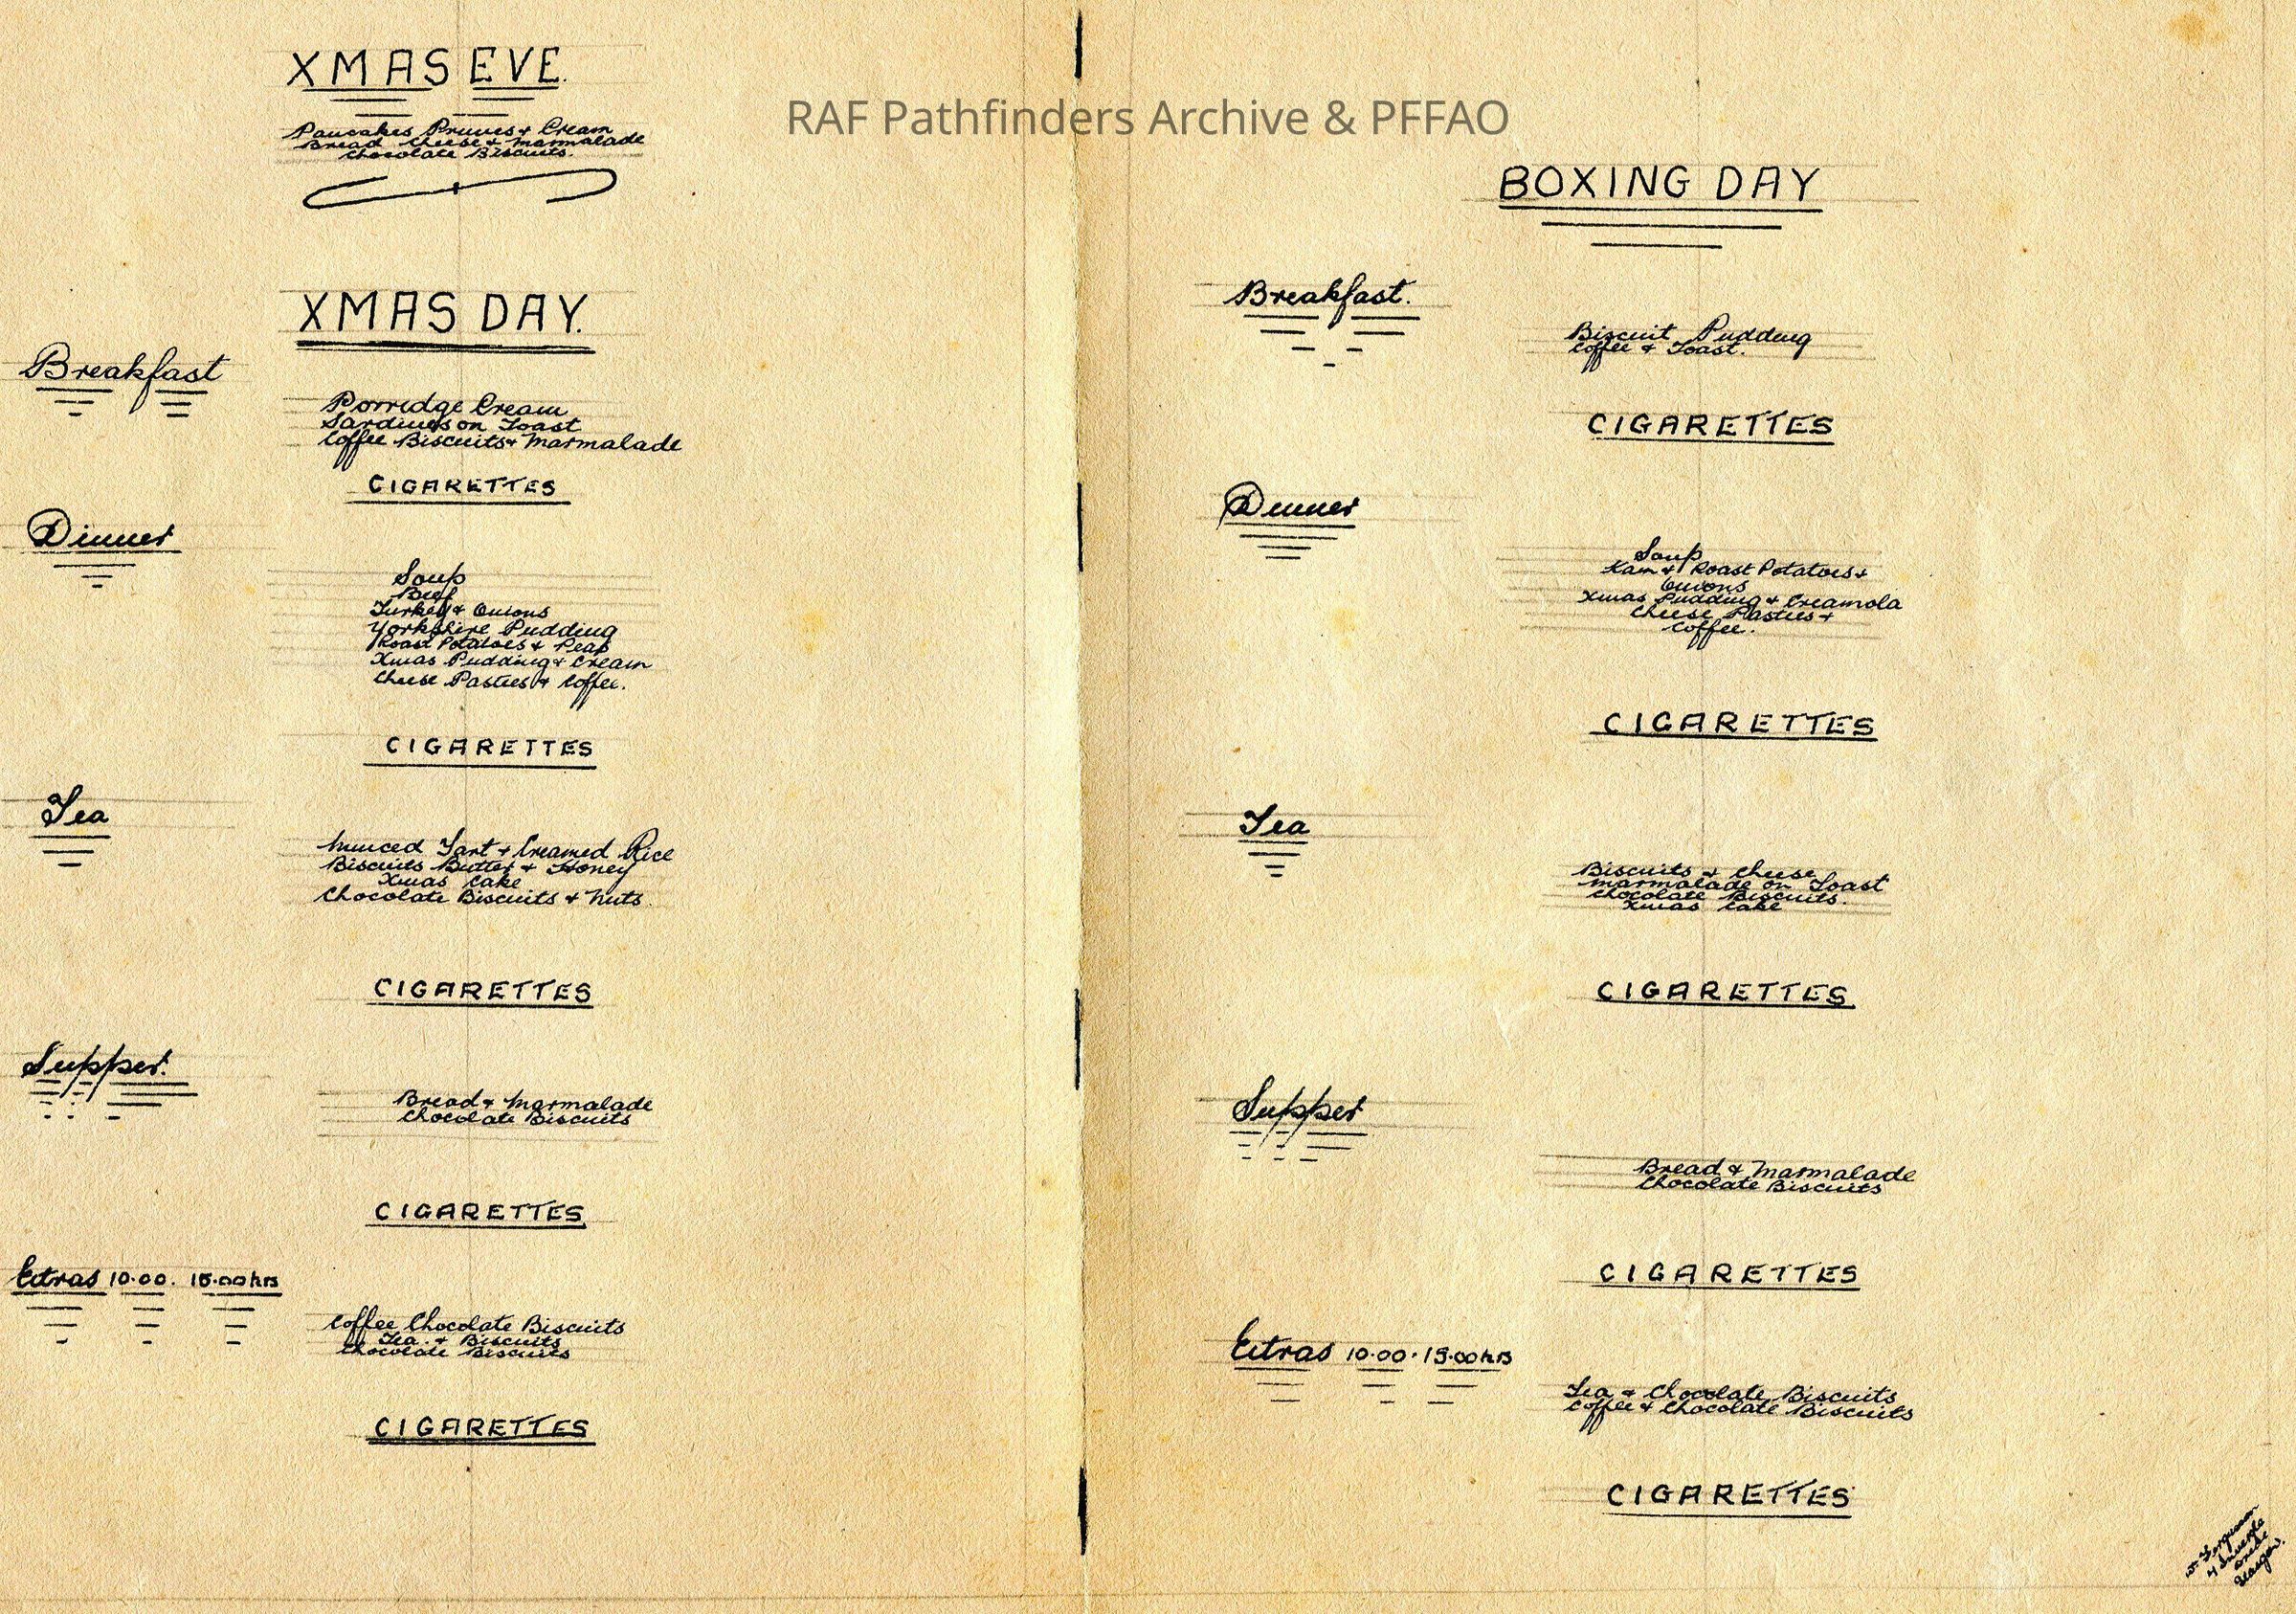 RAF Pathfinders Archive & PFFAO
XMAS EVE.
Pancakes Prunes & Cream
Bread Cheese & Marmalade
Chocolate Biscuits.
XMAS DAY.
Breakfast
Porridge Cream
Sardines on Toast
Coffee Biscuits & Marmalade
CIGARETTES
Dinner
Soup
Beef
Turkey & Onions
Yorkshire Pudding
Roast Potatoes & Peas
Xmas Pudding & Cream
Cheese Pasties & Coffee.
CIGARETTES
Tea
Minced Tart & Creamed Rice
Biscuits Butter & Honey
Xmas Cake
Chocolate Biscuits & Nuts.
CIGARETTES
Supper.
Bread & Marmalade
Chocolate Biscuits
CIGARETTES
Extras 10.00. 15.00hrs
Coffee Chocolate Biscuits
Tea & Biscuits
Chocolate Biscuits
CIGARETTES
BOXING DAY
Breakfast.
Biscuit Pudding
Coffee & Toast.
CIGARETTES
Dinner
Soup
& Roast Potatoes &
Onions
Xmas Pudding & Creamola
Cheese Pasties &
Coffee.
CIGARETTES
Tea
Biscuits & Cheese
Marmalade on Toast
Chocolate Biscuits.
Xmas Cake
CIGARETTES
Supper
Bread & Marmalade
Chocolate Biscuits
CIGARETTES
Extras 10.00. 15.00hrs
Tea & Chocolate Biscuits
Coffee & Chocolate Biscuits
CIGARETTES
Ferguson
Glasgow.